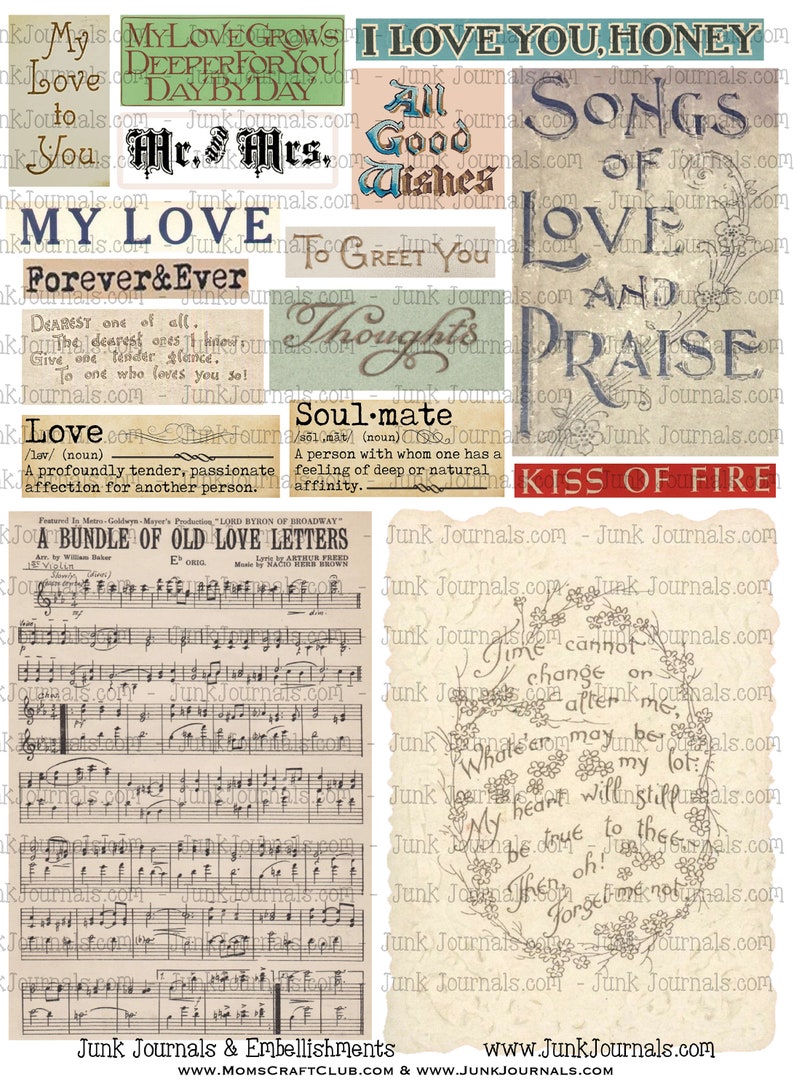 My
Love
to
You
MY LOVE GROWS
DEEPER FOR YOU
DAY BY DAY
I LOVE YOU, HONEY
Mr. and Mrs.
All
Good
Wishes
SONGS
OF
LOVE
AND
PRAISE
MY LOVE
Forever&Ever
TO GREET YOU
DEAREST one of all,
The dearest ones I know;
Give one tender glance,
To one who loves you so!
Thoughts
Love
/ləv/ (noun)
A profoundly tender, passionate
affection for another person.
Soul·mate
/sōl,māt/ (noun)
A person with whom one has a
feeling of deep or natural
affinity.
KISS OF FIRE
Featured In Metro-Goldwyn-Mayer's Production "LORD BYRON OF BROADWAY"
A BUNDLE OF OLD LOVE LETTERS
Arr. by William Baker
Eb ORIG.
Lyric by ARTHUR FREED
Music by NACIO HERB BROWN
1ST Violin
Slowly
mf
dim.
Voice
Chor.
Time cannot
change or
alter me,
Whate'er may be
my lot:
My heart will still
be true to thee
Then, oh!
Forget-me-not
Junk Journals & Embellishments
www.JunkJournals.com
www.MomsCraftClub.com & www.JunkJournals.com
Junk Journals.com - Junk Journals.com - Junk Journals.com